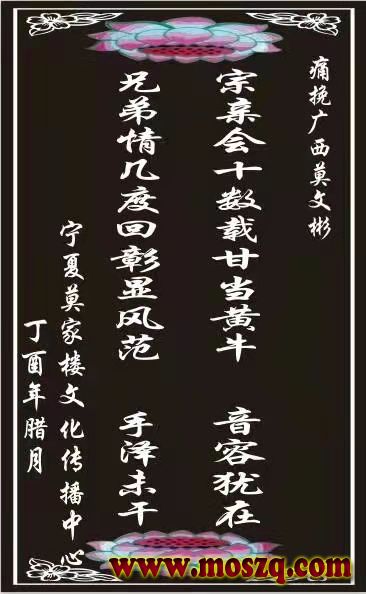 痛挽广西莫文彬
宗亲会十数载甘当黄牛 音容犹在
兄弟情几度回彰显风范 手泽未干
宁夏莫家楼文化传播中心
丁酉年腊月
www.moszq.com